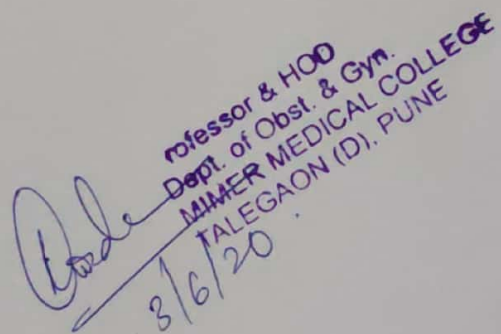 rofessor & HOD
Dept. of Obst. & Gyn.
MIMER MEDICAL COLLEGE
TALEGAON (D), PUNE
3/6/20